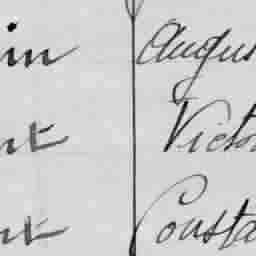 in Augus
nt Victo
nt Consta